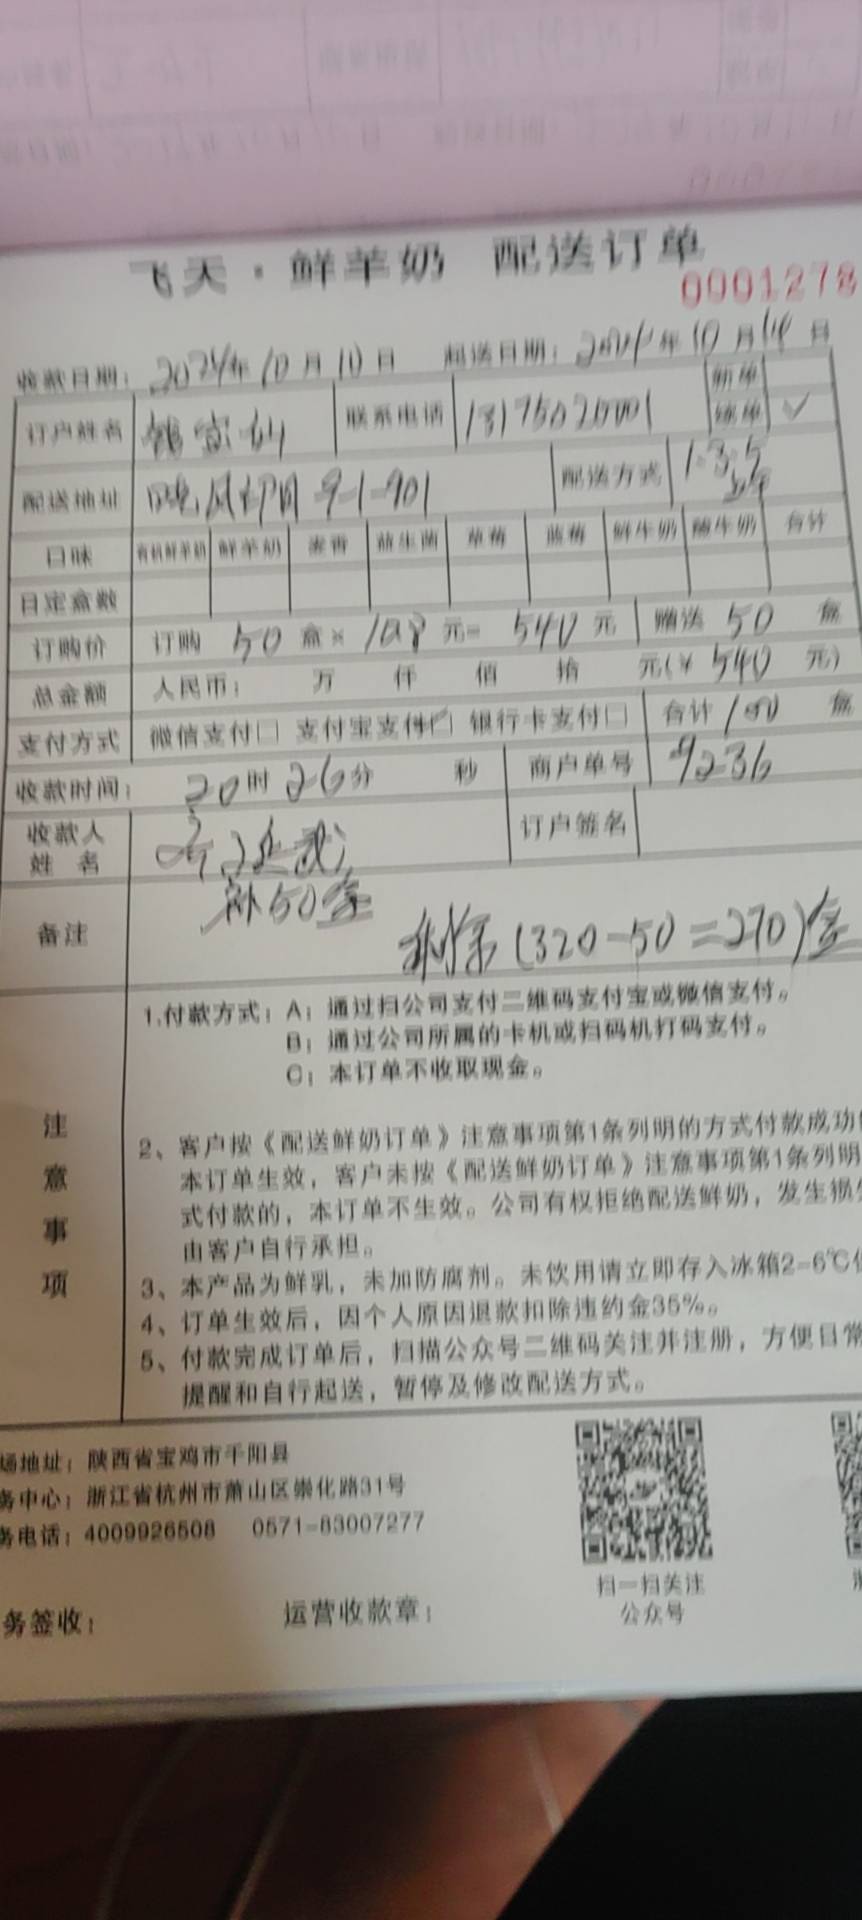 飞天·鲜羊奶 配送订单
0001278
收款日期：2024年10月10日 起送日期：2024年10月14日
订户姓名 联系电话 新单
续单 ✓
配送地址 9-1-901 配送方式 1·3·5
口味 有机鲜羊奶 鲜羊奶 麦香 益生菌 草莓 蓝莓 鲜牛奶 酸牛奶 合计
日定盒数
订购价 订购 50 盒× 10.8 元= 540 元 赠送 50 盒
总金额 人民币： 万 仟 佰 拾 元(￥ 540 元)
支付方式 微信支付□ 支付宝支付☑ 银行卡支付□ 合计 100 盒
收款时间： 20时26分 秒 商户单号 9236
收款人
姓 名 订户签名
备注 补50盒
剩余(320-50=270)盒
注意事项
1.付款方式：A：通过扫公司支付二维码支付宝或微信支付。
B：通过公司所属的卡机或扫码机打码支付。
C：本订单不收取现金。
2、客户按《配送鲜奶订单》注意事项第1条列明的方式付款成功
本订单生效，客户未按《配送鲜奶订单》注意事项第1条列明
式付款的，本订单不生效。公司有权拒绝配送鲜奶，发生损
由客户自行承担。
3、本产品为鲜乳，未加防腐剂。未饮用请立即存入冰箱2-6℃
4、订单生效后，因个人原因退款扣除违约金35%。
5、付款完成订单后，扫描公众号二维码关注并注册，方便日常
提醒和自行起送，暂停及修改配送方式。
场地址：陕西省宝鸡市千阳县
务中心：浙江省杭州市萧山区崇化路31号
务电话：4009926508 0571-83007277
扫一扫关注
公众号
务签收： 运营收款章：